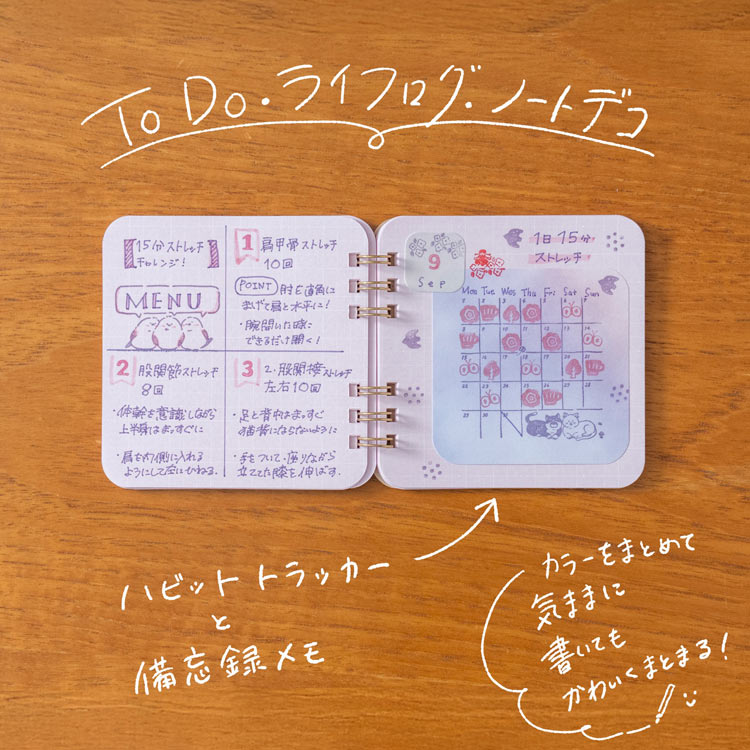 To Do・ライフログ・ノートデコ
15分ストレッチ
チャレンジ!
MENU
1 肩甲骨ストレッチ
10回
POINT 肘を直角に
まげて肩と水平に!
・腕開いた時に
できるだけ開く!
2 股関節ストレッチ
8回
・体幹を意識しながら
上半身はまっすぐに
・肩を内側に入れる
ようにして左にひねる.
3 2.股関接ストレッチ
左右10回
・足と背中はまっすぐ
猫背にならないように
・手をついて・座りながら
立てた膝を伸ばす.
9
Sep
1日15分
ストレッチ
Mon Tue Wed Thu Fri Sat Sun
ハビットトラッカー
と
備忘録メモ
カラーをまとめて
気ままに
書いても
かわいくまとまる!